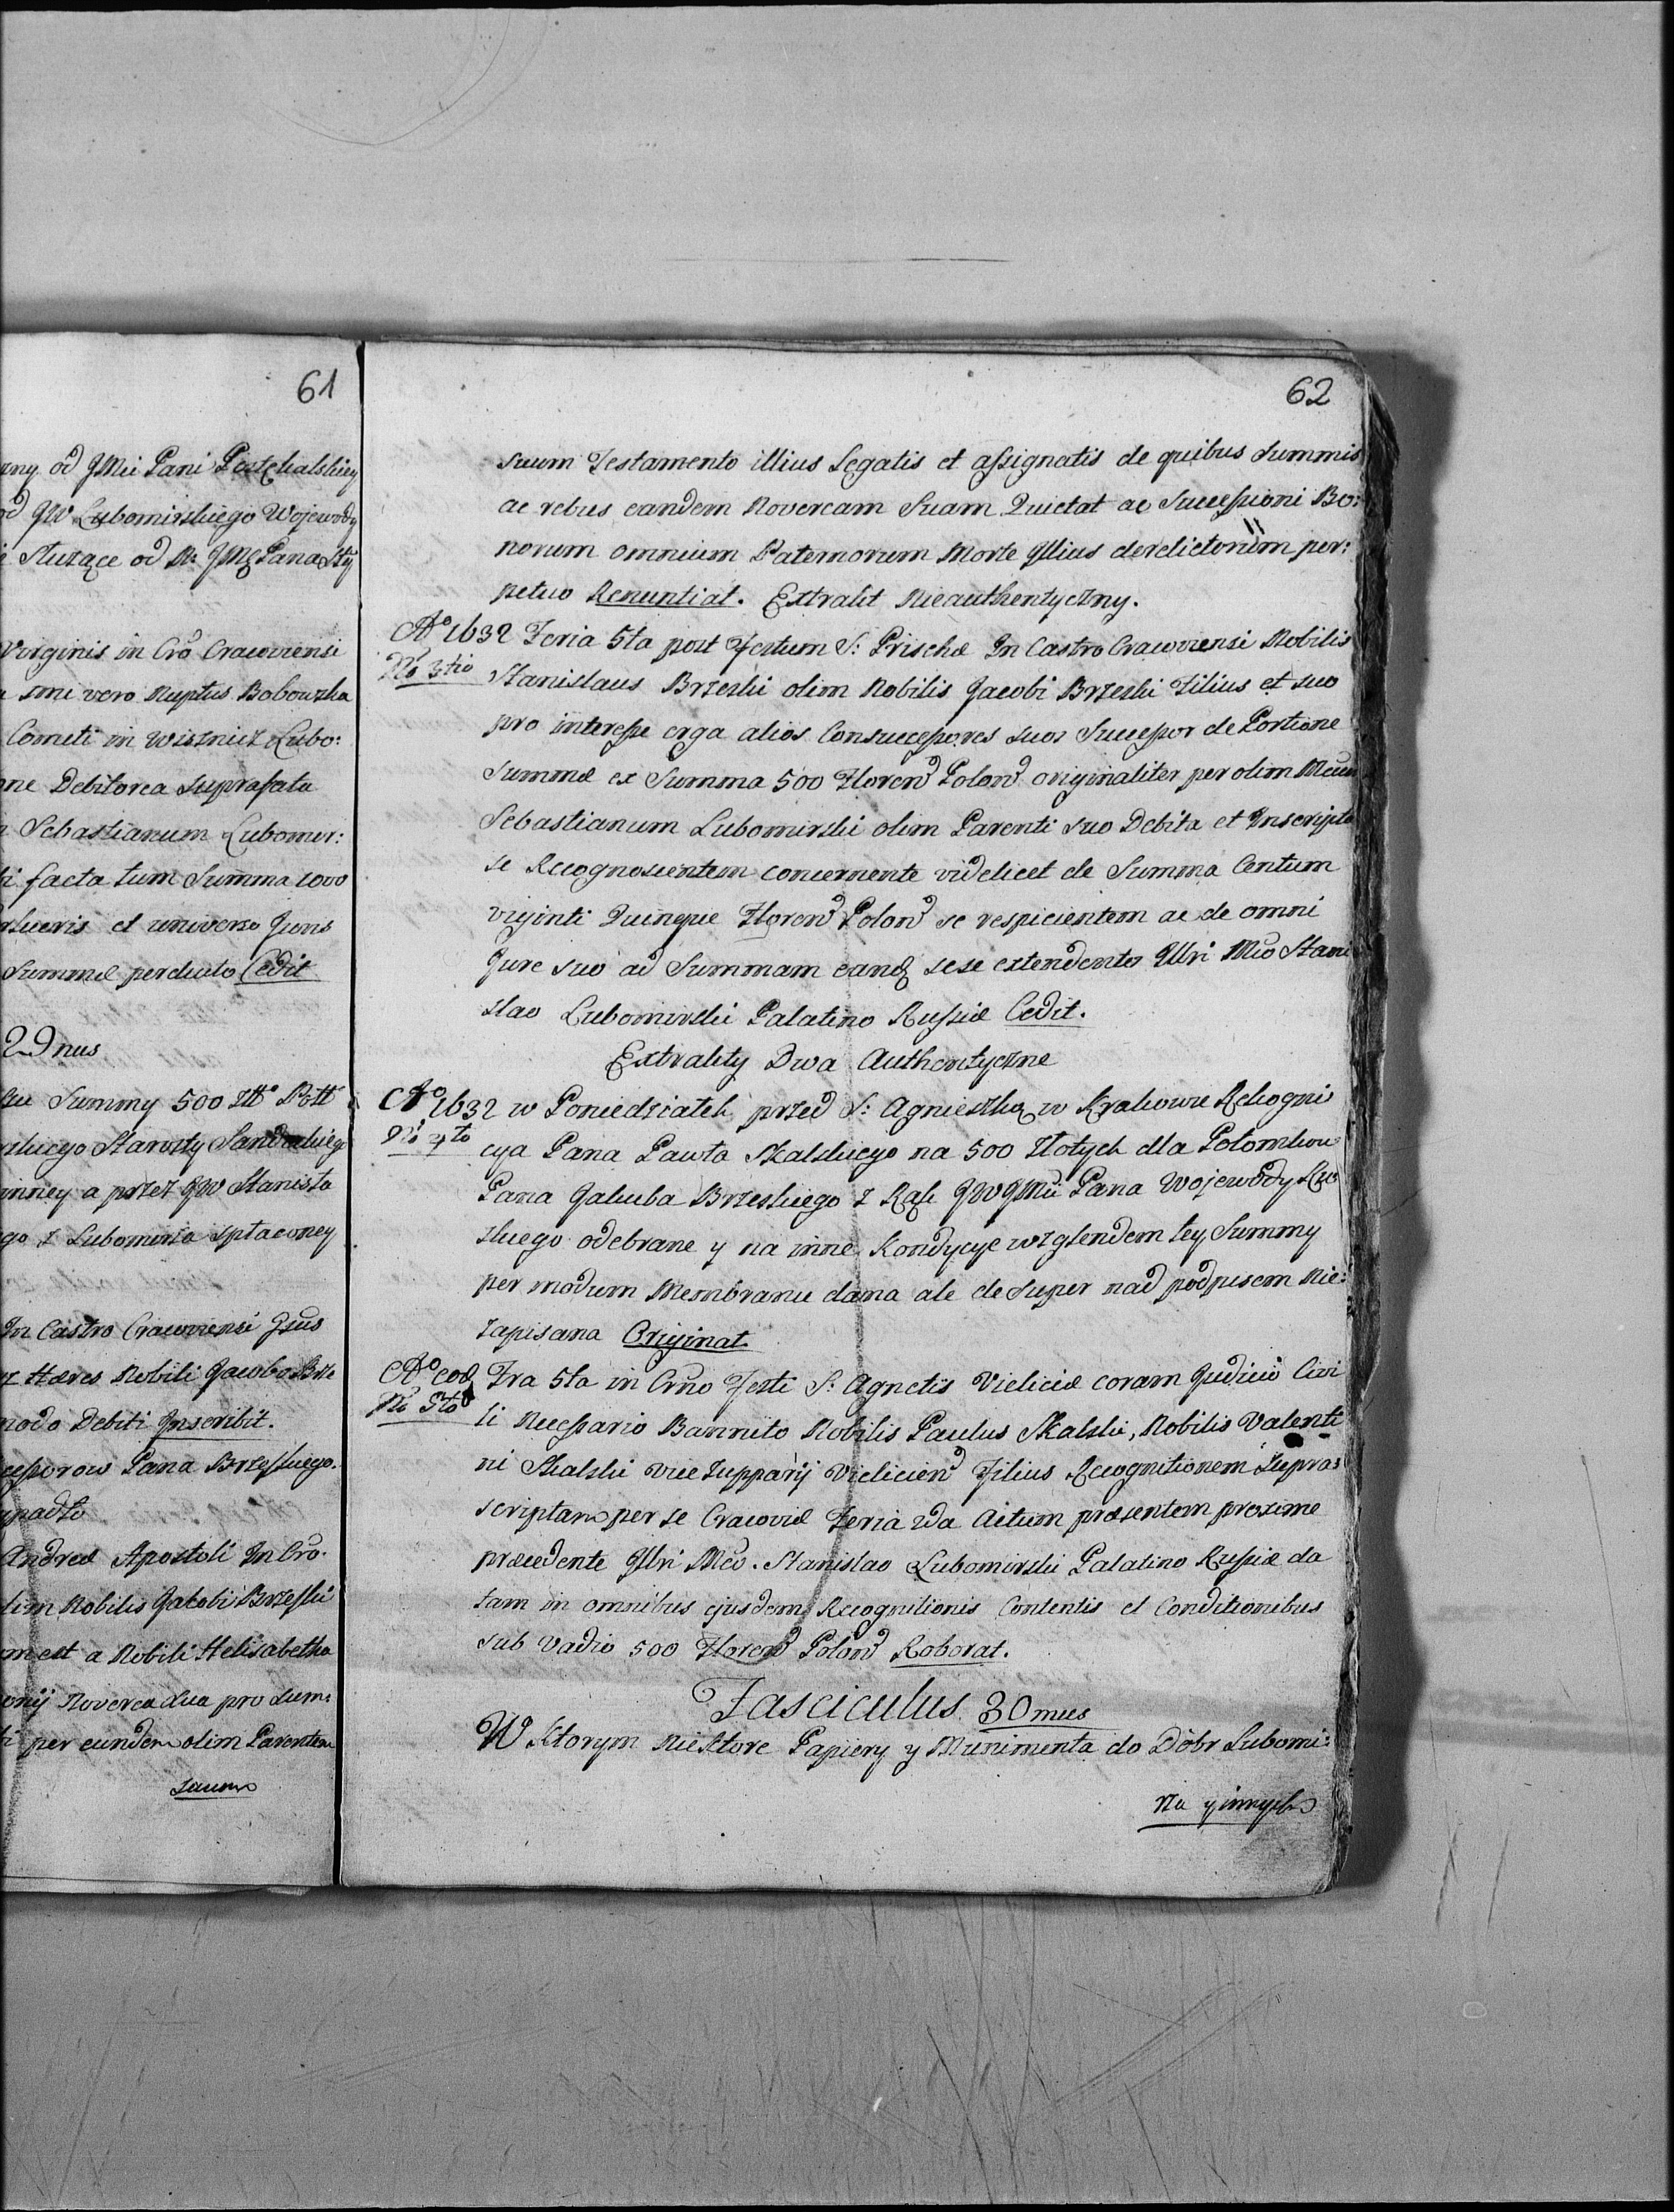 61
zny od JMci Pani Pstchalskiey
od JW Lubomirskiego Wojewody
i służące od
Virginis in Crō Cracoviensi
smi vero Nuptus Bobowska
Comiti in Wisznicz Lubo:
ne Debitorea suprafata
Sebastianum Lubomir:
facta tum Summa 1000
et universo Juris
Summæ perducto Cedit
29nus
Summy 500 Złł° Poll
Starosty Sandeckiego
inney a przez JW Stanisła
go z Lubomirza spłaconey
In Castro Cracoviensi
Hæres Nobili Jacobo Brze
modo Debiti Inscribit.
cessorow Pana Brzeskiego.
padło
Andreæ Apostoli In Crō.
lim Nobilis Jakobi Brzeski
m est a Nobili Helisabetha
Noverca sua pro sum:
per eundem olim Parentem
suum
62
suum Testamento illius Legatis et assignatis de quibus Summis
ac rebus eandem Novercam Suam Quietat ac Successioni Bo:
norum omnium Paternorum Morte Illius derelictorum per:
petuo Renuntiat. Extrakt Nieauthentyczny.
A° 1632 Feria 5ta post Festum S: Priscæ In Castro Cracoviensi Nobilis
No 3tio Stanislaus Brzeski olim Nobilis Jacobi Brzeski Filius et suo
pro interesse erga alios Consuccessores suos Successor de Portione
Summæ ex Summa 500 Floren Polon originaliter per olim
Sebastianum Lubomirski olim Parenti suo Debita et Inscripta
se Recognoscentem concernente videlicet de Summa Centum
viginti Quinque Floren Polon se respicientem ac de omni
Jure suo ad Summam eand sese extendente Illri Mco Stani
slao Lubomirski Palatino Russiæ Cedit.
Extrakty Dwa Authentyczne
A° 1632 w Poniedziałek przed S: Agnieszką w Krakowie Rekogni
No 4to cya Pana Pawła Skalskiego na 500 Złotych dla Potomkow
Pana Jakuba Brzeskiego z Rąk JWJMci Pana Wojewody
skiego odebrane y na inne Kondycye wzglendem tey Summy
per modum Membranu dana ale desuper nad podpisem nie:
zapisana Originał
A° eod Fra 5ta in Crn̄o Festi S: Agnetis Vieliciæ coram Judicio Civi
No 5to li Necessario Bannito Nobilis Paulus Skalski, Nobilis Valenti
ni Skalski vice Zupparij Vielicien Filius Recognitionem supra:
scriptam per se Cracoviæ Feria 2da Actum præsentem proxime
præcedente Illri Mco. Stanislao Lubomirski Palatino Russiæ da
tam in omnibus ejusdem Recognitionis Contentis et Conditionibus
sub vadio 500 Floren Polon Roborat.
Fasciculus 30mus
W Ktorym niektore Papiery y Munimenta do Dobr Lubomi:
rza y innych